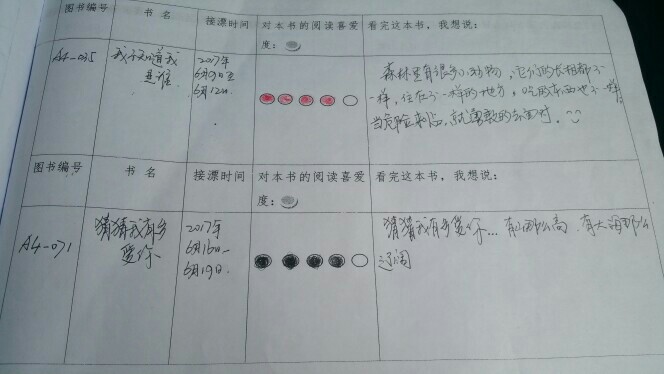 图书编号 书 名 接漂时间 对本书的阅读喜爱度： 看完这本书，我想说：
A4-035 我不知道我是谁 2017年6月9日至6月12日.
森林里有很多小动物，它们的长相都不一样，住在不一样的地方，吃的东西也不一样，
当危险来临，就勇敢的去面对.
图书编号 书 名 接漂时间 对本书的阅读喜爱度： 看完这本书，我想说：
A4-071 猜猜我有多爱你 2017年6月16日—6月19日.
猜猜我有多爱你...有山那么高.有大海那么
辽阔